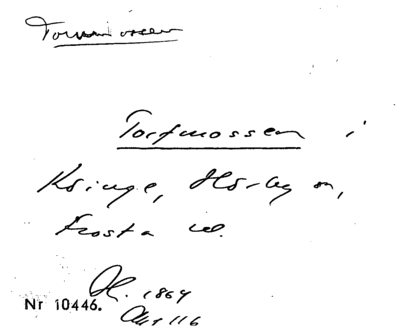 Torvmossen
Torfmossen i
Köinge, Hörby sn,
Frosta hd.
1864
Nr 10446.
Akt 116